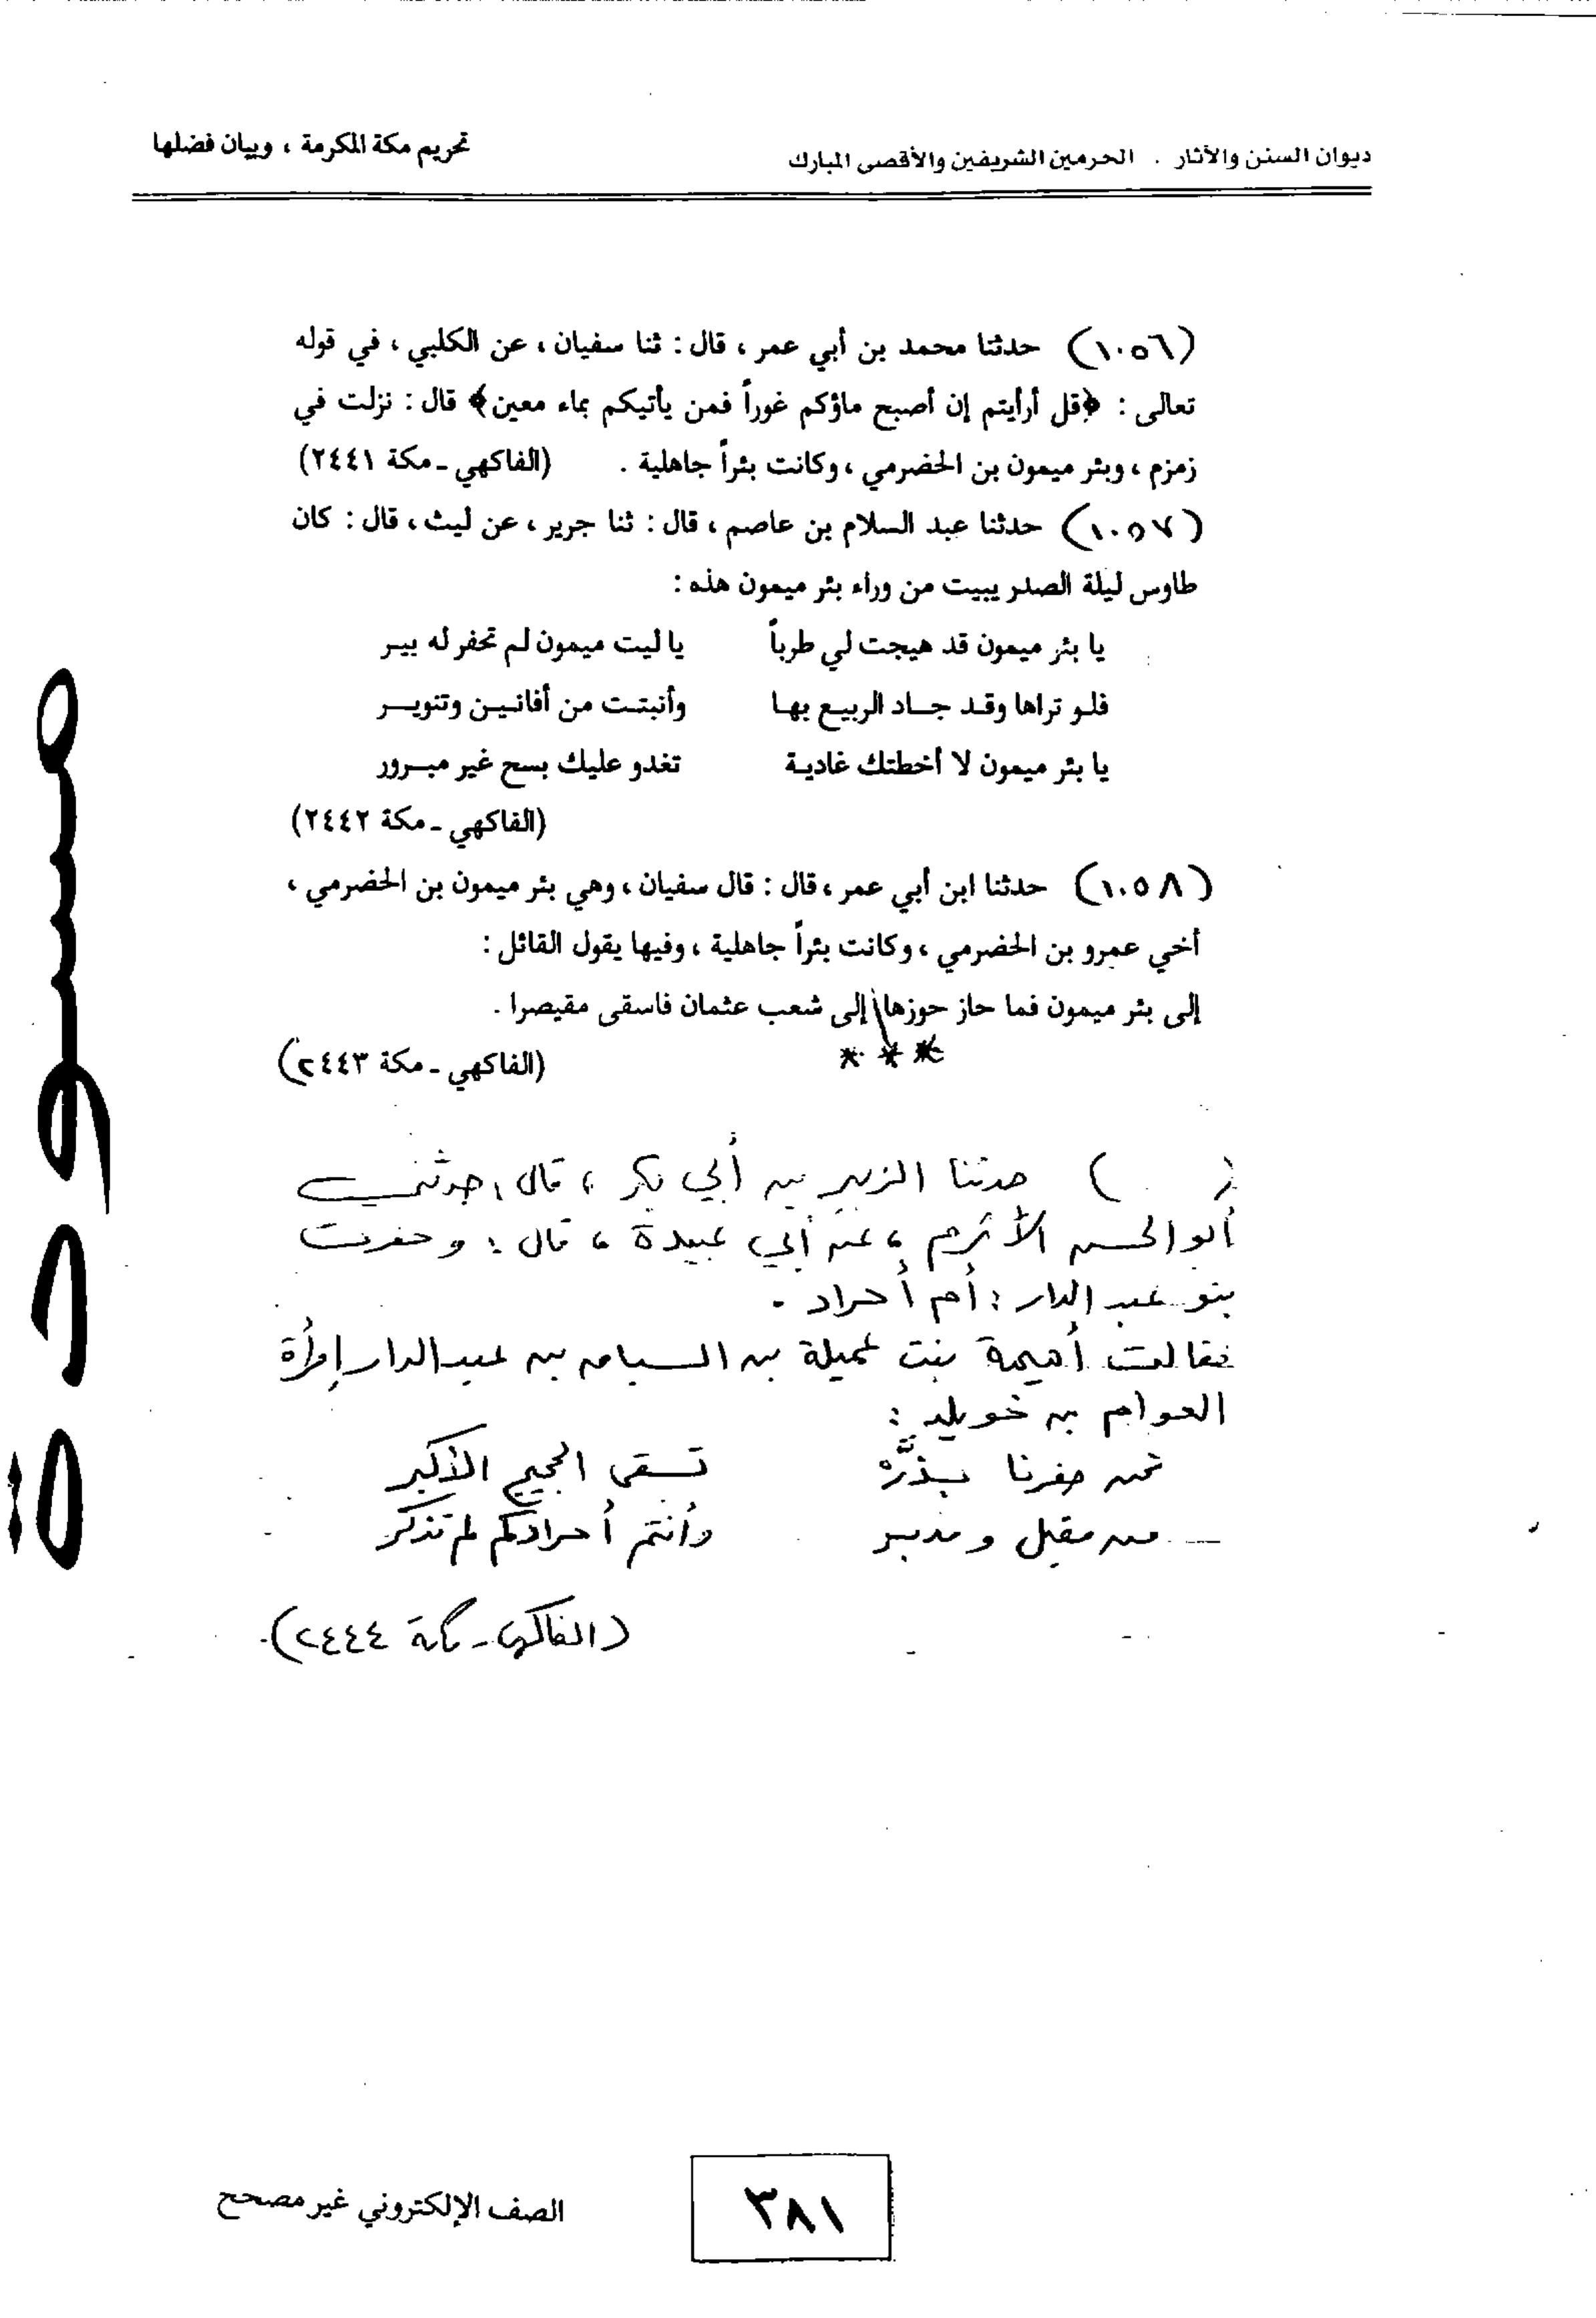 ديوان السنن والآثار . الحرمين الشريفين والأقصى المبارك تحريم مكة المكرمة ، وبيان فضلها
(١٠٥٦) حدثنا محمد بن أبي عمر ، قال : ثنا سفيان ، عن الكلبي ، في قوله
تعالى : ﴿قل أرأيتم إن أصبح ماؤكم غوراً فمن يأتيكم بماء معين﴾ قال : نزلت في
زمزم ، وبئر ميمون بن الحضرمي ، وكانت بئراً جاهلية . (الفاكهي ـ مكة ٢٤٤١)
(١٠٥٧) حدثنا عبد السلام بن عاصم ، قال : ثنا جرير ، عن ليث ، قال : كان
طاوس ليلة الصدر يبيت من وراء بئر ميمون هذه :
يا بئر ميمون قد هيجت لي طرباً يا ليت ميمون لم تحفر له بيـر
فلـو تراها وقـد جـاد الربيـع بهـا وأنبتـت من أفانيـن وتنويـر
يا بئر ميمون لا أخطتك غاديـة تغدو عليك بسح غير مبـرور
(الفاكهي ـ مكة ٢٤٤٢)
(١٠٥٨) حدثنا ابن أبي عمر ، قال : قال سفيان ، وهي بئر ميمون بن الحضرمي ،
أخي عمرو بن الحضرمي ، وكانت بئراً جاهلية ، وفيها يقول القائل :
إلى بئر ميمون فما حاز حوزها إلى شعب عثمان فاسقى مقيصرا .
* * *
(الفاكهي ـ مكة ٢٤٤٣)
( ) حدثنا الزبير بن أبي بكر ، قال : حدثني
أبو الحسن الأثرم ، عن أبي عبيدة ، قال : وحفرت
بنو عبد الدار : أم أحراد .
فقالت أميمة بنت عميلة بن السباق بن عبد الدار إمرأة
العوام بن خويلد :
نحن حفرنا بـذَّرْ تسقي الحجيج الأكبر
من مقبل ومدبـر وأنتم أحرادكم لم تذكر
(الفاكهي ـ مكة ٢٤٤٤).
مسودة
٣٨١
الصف الإلكتروني غير مصحح